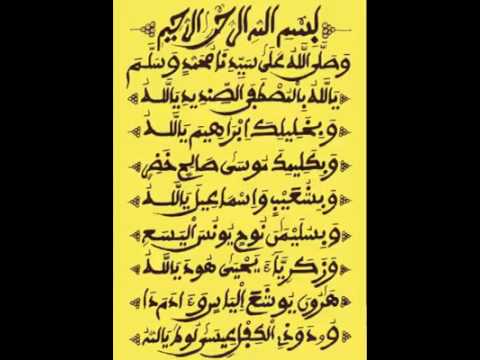 بسم الله الرحمن الرحيم
وَصَلَّى اللَّهُ عَلَى سَيِّدِنَا مُحَمَّدٍ وَسَلَّمَ
يَا اللَّهُ بِالْمُصْطَفَى الصِّنْدِيدِ يَا اللَّهُ
وَبِخَلِيلِكَ إِبْرَاهِيمَ يَا اللَّهُ
وَبِكَلِيمِكَ مُوسَى صَالِحٍ خَضِرٍ
وَبِشُعَيْبٍ وَإِسْمَاعِيلَ يَا اللَّهُ
وَبِسُلَيْمٰنَ نُوحٍ يُونُسَ الْيَسَعِ
وَزَكَرِيَّاءَ يَحْيَى هُودَ يَا اللَّهُ
هَارُونَ يُوشَعَ إِلْيَاسٍ وَءَادَمَ دَا
وُودَ وَذِي الْكِفْلِ عِيسَى لُوطٍ يَا اللَّهُ